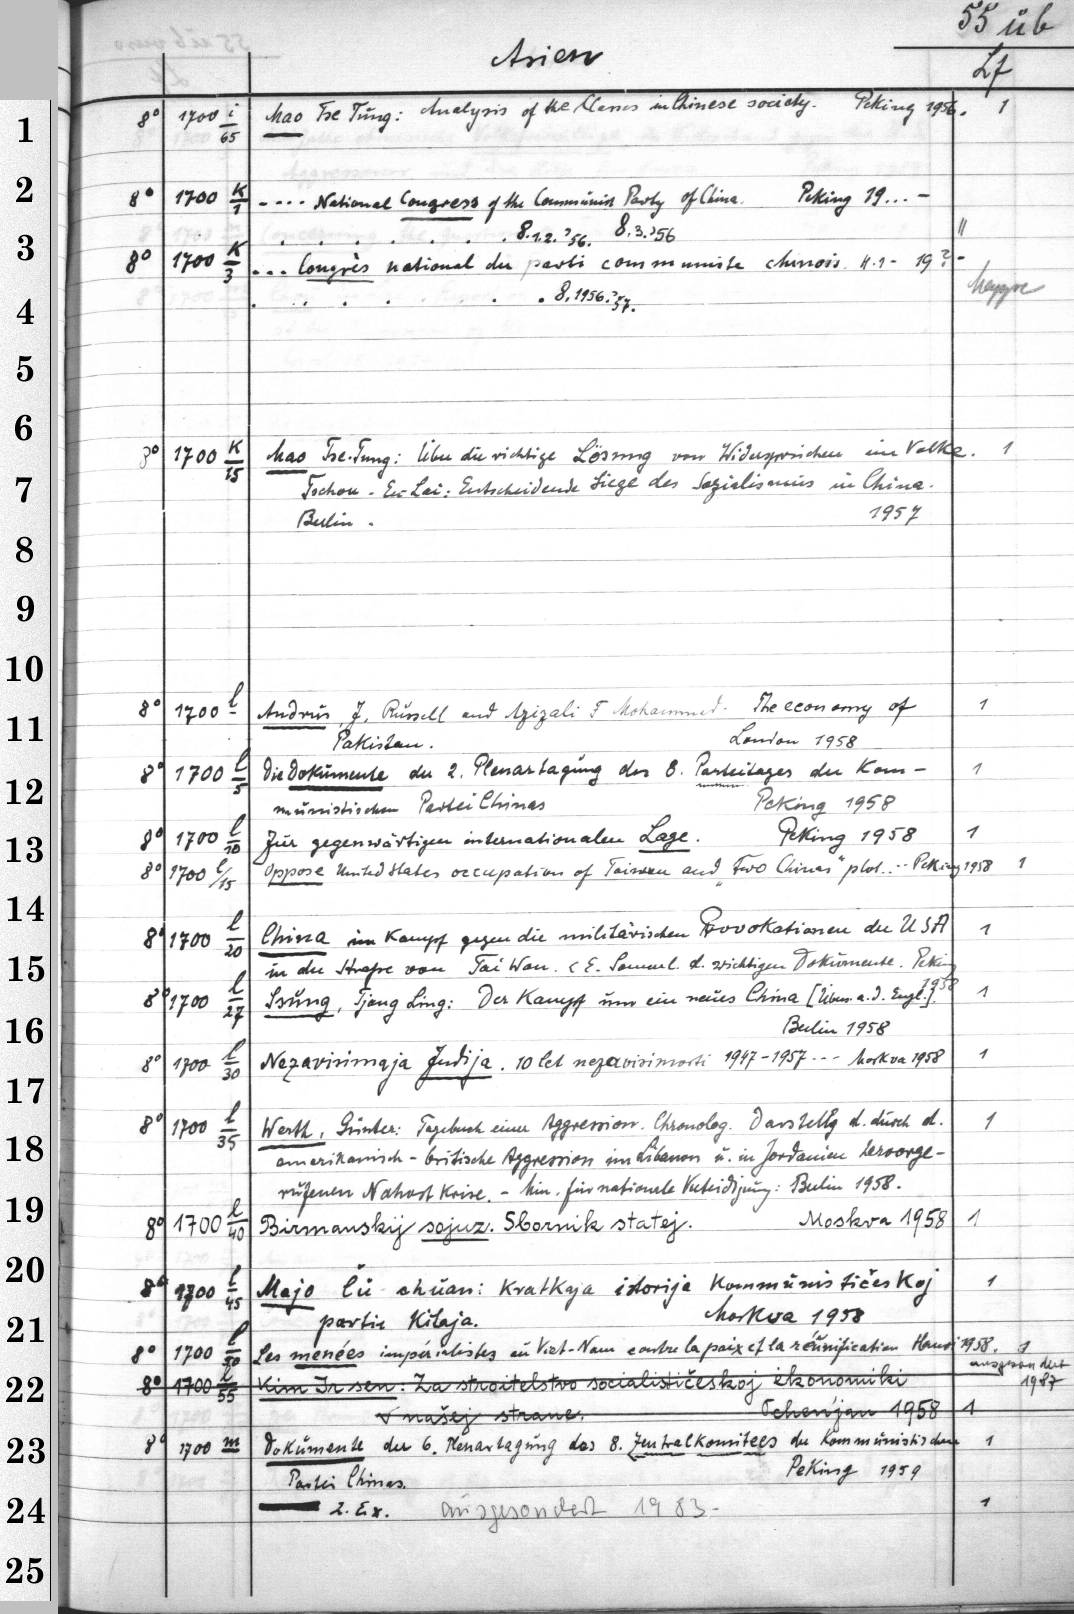 55 üb
Asien
Lf
1 8° 1700 i/65 Mao Tse Tung: Analysis of the Classes in Chinese society. Peking 1956. 1
2 8° 1700 K/1 - ... National Congress of the Communist Party of China. Peking 19... -
. . . . . . . 8.1.2. ?56. 8.3. ?56 "
3 8° 1700 K/3 ... Congrès national du parti communiste chinois. 1.- 19?-
4 . . . . . . 8. 1956. ?57.
5
6
8° 1700 K/15 Mao Tse-Tung: Über die richtige Lösung von Widersprüchen im Volke. 1
7 Tschou-En-Lai: Entscheidende Siege des Sozialismus in China.
Berlin. 1957
8
9
10
11 8° 1700 l/- Andrus, J. Russell and Azizali F Mohammed. The economy of 1
Pakistan. London 1958
12 8° 1700 l/5 Die Dokumente der 2. Plenartagung des 8. Parteitages der Kom- 1
munistischen Partei Chinas Peking 1958
13 8° 1700 l/10 Zur gegenwärtigen internationalen Lage. Peking 1958 1
8° 1700 l/15 Oppose United States occupation of Taiwan and "Two Chinas" plot... Peking 1958 1
14
8° 1700 l/20 China im Kampf gegen die militärischen Provokationen der USA 1
15 in der Strasse von Tai Wan. <E. Samml. d. wichtigen Dokumente. Peking
1958
8° 1700 l/27 Ssung, Tjang Ling: Der Kampf um ein neues China [Übers. a. d. Engl.]. 1
16 Berlin 1958
8° 1700 l/30 Nezavisimaja Indija. 10 let nezavisimosti 1947-1957 --- Moskva 1958 1
17
8° 1700 l/35 Werth, Günter: Tagebuch einer Aggression. Chronolog. Darstellg d. durch d. 1
18 amerikanisch-britische Aggression im Libanon u. in Jordanien hervorge-
rufenen Nahost Krise. - Min. für nationale Verteidigung: Berlin 1958.
19 8° 1700 l/40 Birmanskij sojuz. Sbornik statej. Moskva 1958 1
20 8° 1700 l/45 Majo Čü-chuan: Kratkaja istorija Kommunističeskoj 1
21 partii Kitaja. Moskva 1958
8° 1700 l/50 Les menées impérialistes au Viet-Nam contre la paix et la réunification Hanoi 1958. 1
ausgesondert
1987
22 8° 1700 l/55 Kim Ir sen: Za stroitelstvo socialističeskoj ekonomiki
v našej strane. Pchen'jan 1958 1
23 8° 1700 m Dokumente der 6. Plenartagung des 8. Zentralkomitees der Kommunistischen 1
Partei Chinas. Peking 1959
24 2. Ex. ausgesondert 1983- 1
25